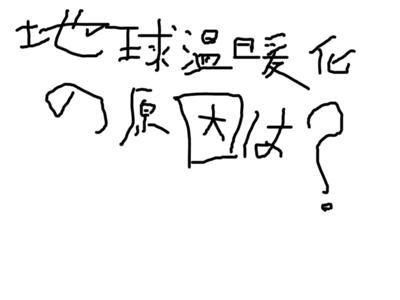 地球温暖化
の原因は?